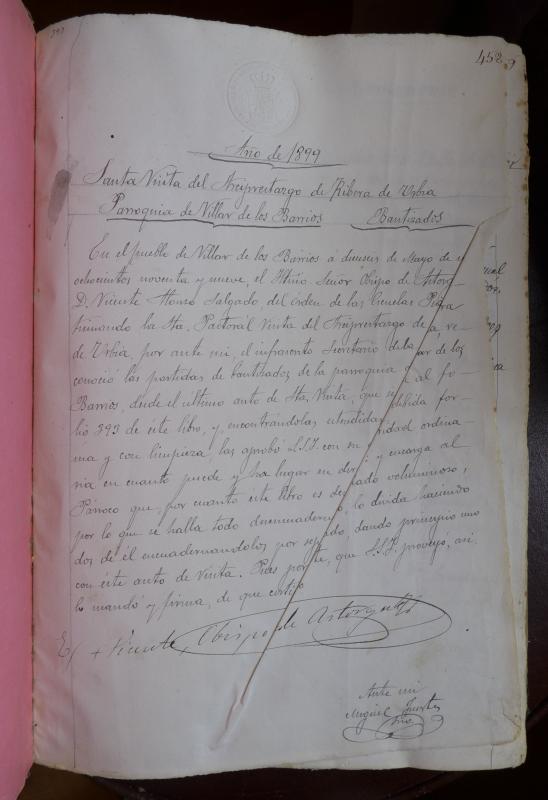 393
452
Año de 1899
Santa Visita del Arciprestazgo de Ribera de Urbia
Parroquia de Villar de los Barrios Bautizados
En el pueblo de Villar de los Barrios á dieciseis de Mayo de
ochocientos noventa y nueve, el Iltmo Señor Obispo de Astorga
D. Vicente Alonso Salgado, del órden de las Escuelas Pías
Sta. Pastoral Visita del Arciprestazgo de
de Urbia, por ante mi, el infrascrito Secretario de re
conoció las partidas de bautizados de la parroquia ar de los
Barrios, desde el ultimo auto de Sta. Visita, que al fo
lio 393 de este libro, y encontrándolas estendidas debida for
ma y con limpieza, las aprobó S.S.I. con su ridad ordina
ria en cuanto puede y ha lugar en der y encarga al
Párroco que, por cuanto este libro es de iado voluminoso,
por lo que se halla todo desencuadernado, lo divida haciendo
dos de él encuadernandolos por sepado, dando principio uno
con este auto de Visita. por te, que S.S.I. proveyó, así
lo mandó y firma, de que certifico
+ Vicente, Obispo de Astorga
Ante mi
Miguel Fuertes
Srio